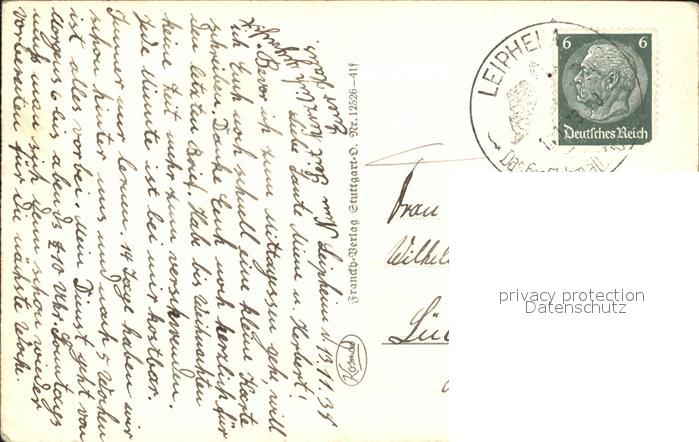 Leipheim d. 13.11.38
Liebe Tante Mine u. Herbert!
Bevor ich zum Mittagessen geh, will
ich Euch noch schnell eine kleine Karte
schreiben. Danke Euch noch herzlich für
den letzten Brief. Hab bis Weihnachten
keine Zeit mehr zum verschwenden.
Jede Minute ist bei mir kostbar.
Immer nur lernen. 14 Tage haben wir
schon hinter uns und nach 5 Wochen
ist alles vorbei. Mein Dienst geht von
Morgens 6 bis abends 10 Uhr. Sonntags
muß man sich dann schon wieder
vorbereiten für die nächste Woche.
Franckh-Verlag Stuttgart-O. Nr. 12526-41f
Kosmos
LEIPHEIM
6 6
Deutsches Reich
Frau
Wilhel
privacy protection
Datenschutz